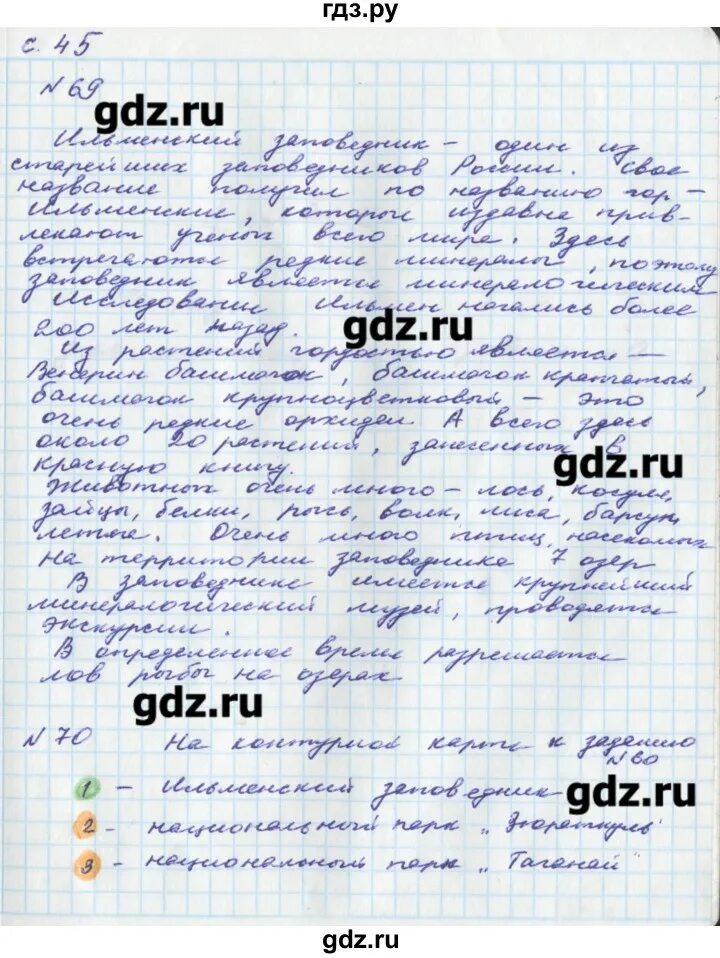 гдз.ру
с. 45
№ 69
gdz.ru
Ильменский заповедник – один из
старейших заповедников России. Свое
название получил по названию гор –
Ильменские, которые издавна прив-
лекают ученых всего мира. Здесь
встречаются редкие минералы, поэтому
заповедник является минералогическим
Исследования Ильмен начались более
200 лет назад.
gdz.ru
Из растений гордостью является –
Венерин башмачок, башмачок крапчатый,
башмачок крупноцветковый – это
очень редкие орхидеи. А всего здесь
около 20 растений, занесенных в
красную книгу.
gdz.ru
Животных очень много – лось, косуля,
зайцы, белки, рысь, волк, лиса, барсук,
летяга. Очень много птиц, насекомых
На территории заповедника 7 озер
В заповеднике имеется крупнейший
минералогический музей, проводятся
экскурсии.
В определенное время разрешается
лов рыбы на озерах
gdz.ru
№ 70 На контурной карте к заданию
№ 60
1 – Ильменский заповедник
gdz.ru
2 – национальный парк „Зюраткуль"
3 – национальный парк „Таганай"
gdz.ru